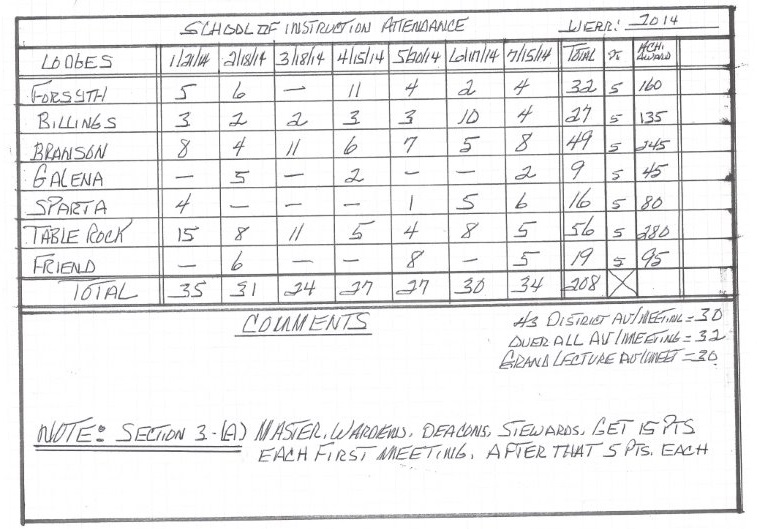 SCHOOL OF INSTRUCTION ATTENDANCE WERR: 2014
LODGES 1/21/14 2/18/14 3/18/14 4/15/14 5/20/14 6/17/14 7/15/14 TOTAL X ACH. AWARD
FORSYTH 5 6 — 11 4 2 4 32 5 160
BILLINGS 3 2 2 3 3 10 4 27 5 135
BRANSON 8 4 11 6 7 5 8 49 5 245
GALENA — 5 — 2 — — 2 9 5 45
SPARTA 4 — — — 1 5 6 16 5 80
TABLE ROCK 15 8 11 5 4 8 5 56 5 280
FRIEND — 6 — — 8 — 5 19 5 95
TOTAL 35 31 24 27 27 30 34 208
COMMENTS
43 DISTRICT AV/MEETING = 30
OVER ALL AV/MEETING = 32
GRAND LECTURE AV/MEET = 30
NOTE: SECTION 3-(A) MASTER, WARDENS, DEACONS, STEWARDS, GET 15 PTS
EACH FIRST MEETING, AFTER THAT 5 PTS. EACH